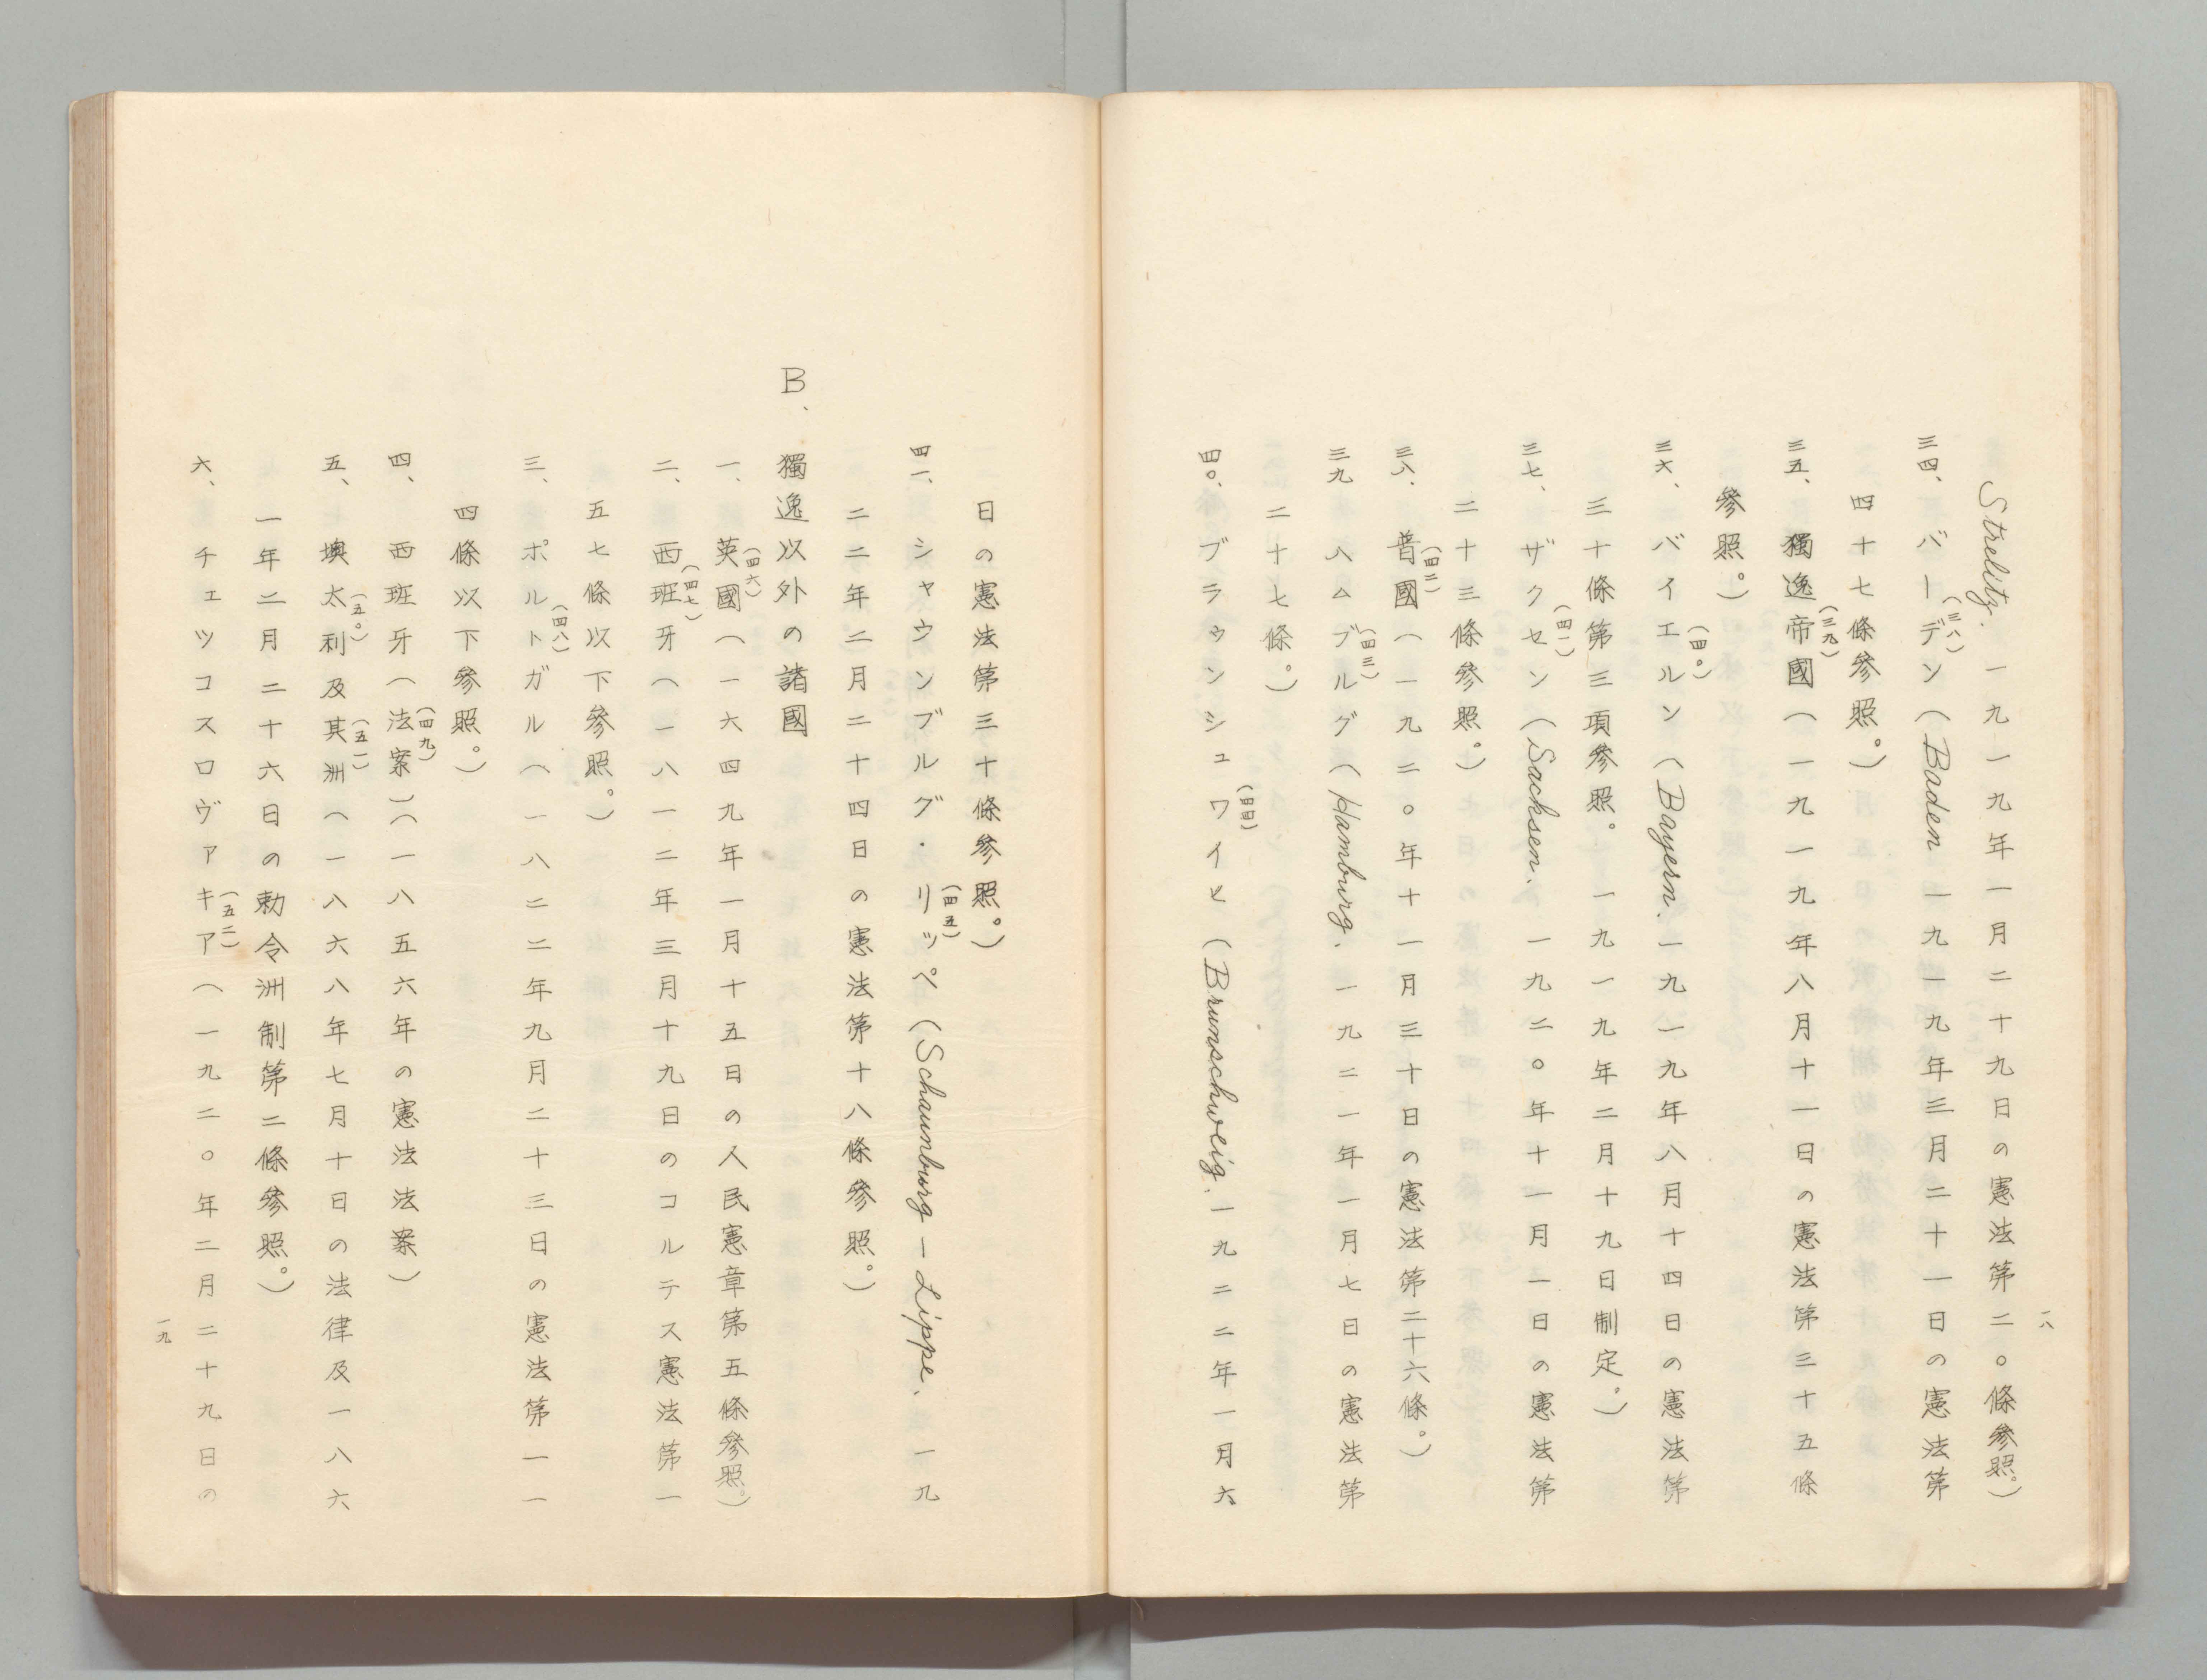 一八
Strelitz. 一九一九年一月二十九日の憲法第二〇條參照。)
三四、バーデン(三八)(Baden 一九一九年三月二十一日の憲法第
四十七條參照。)
三五、獨逸帝國(三九)(一九一九年八月十一日の憲法第三十五條
參照。)
三六、バイエルン(四〇)(Bayern. 一九一九年八月十四日の憲法第
三十條第三項參照。一九一九年二月十九日制定。)
三七、ザクセン(四一)(Sachsen. 一九二〇年十一月一日の憲法第
二十三條參照。)
三八、普國(四二)(一九二〇年十一月三十日の憲法第二十六條。)
三九 ハムブルグ(四三)(Hamburg. 一九二一年一月七日の憲法第
二十七條。)
四〇、ブラウンシュワイヒ(四四)(Brunschweig. 一九二二年一月六
日の憲法第三十條參照。)
四一、シャウンブルグ・リッペ(四五)(Schaunburg—Lippe. 一九
二二年二月二十四日の憲法第十八條參照。)
B、獨逸以外の諸國
一、英國(四六)(一六四九年一月十五日の人民憲章第五條參照。)
二、西班牙(四七)(一八一二年三月十九日のコルテス憲法第一
五七條以下參照。)
三、ポルトガル(四八)(一八二二年九月二十三日の憲法第一一
四條以下參照。)
四、西班牙(法案)(四九)(一八五六年の憲法法案)
五、墺太利(五〇)及其洲(五一)(一八六八年七月十日の法律及一八六
一年二月二十六日の勅令洲制第二條參照。)
六、チェツコスロヴァキア(五二)(一九二〇年二月二十九日の
一九